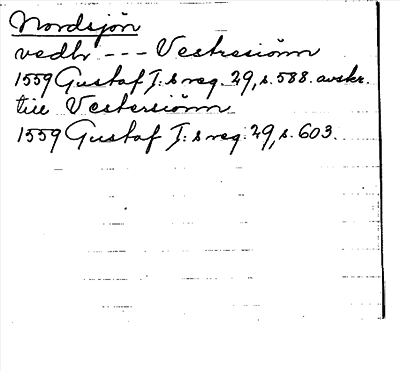 Nordsjön
vedh --- Vestresiönn
1559 Gustaf I:s reg. 29, s. 588. avskr.
till Vestersiönn
1559 Gustaf I:s reg. 29, s. 603.